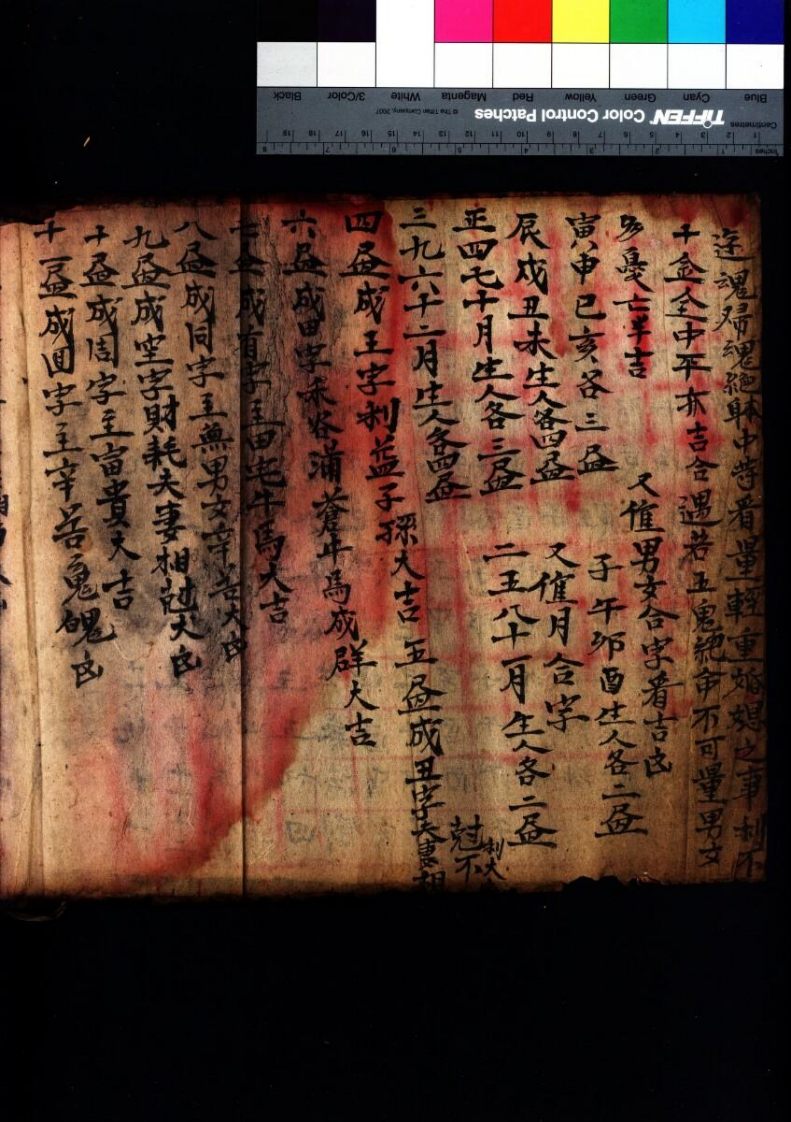 遊魂歸魂絕体中等看量輕重婚姻之事利不
十全全中平亦吉合遇若五鬼絕命不可量男女
多憂亡半吉
又推男女合字看吉凶
子午卯酉生人各二昷
寅申巳亥各三昷
辰戌丑未生人各四昷
又推月合字
二五八十一月生人各二昷
正四七十月生人各三昷
三九六十二月生人各四昷
四昷成王字利益子孫大吉
五昷成丑字夫妻相
尅不
利大
六昷成田字禾谷滿蒼牛馬成群大吉
七昷成首字主田宅牛馬大吉
八昷成同字主無男女辛苦大凶
九昷成空字財耗夫妻相尅大凶
十昷成周字主富貴大吉
十一昷成囬字主辛苦鬼魄凶
TIFFEN Color Control Patches
© The Tiffen Company, 2007
Centimetres
Inches
Blue
Cyan
Green
Yellow
Red
Magenta
White
3/Color
Black
1 2 3 4 5 6 7 8 9 10 11 12 13 14 15 16 17 18 19